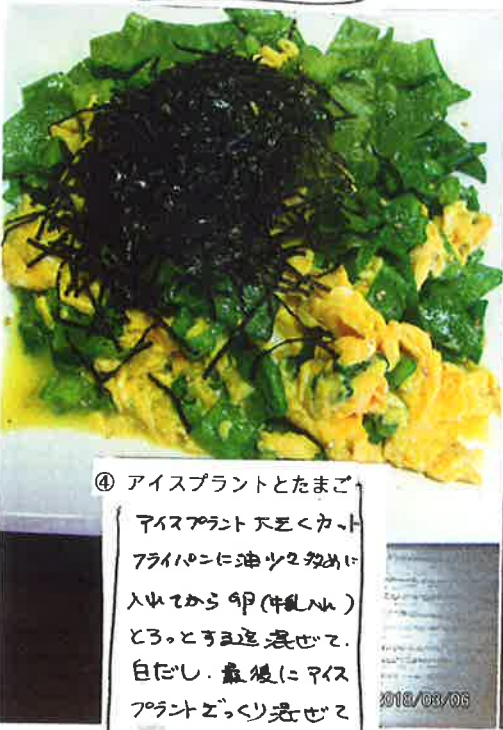 ④ アイスプラントとたまご
アイスプラント 大きくカット
フライパンに油少々多めに
入れてから 卵(牛乳入れ)
とろっとする迄 混ぜて、
白だし、最後に アイス
プラントざっくり混ぜて
2018/03/06